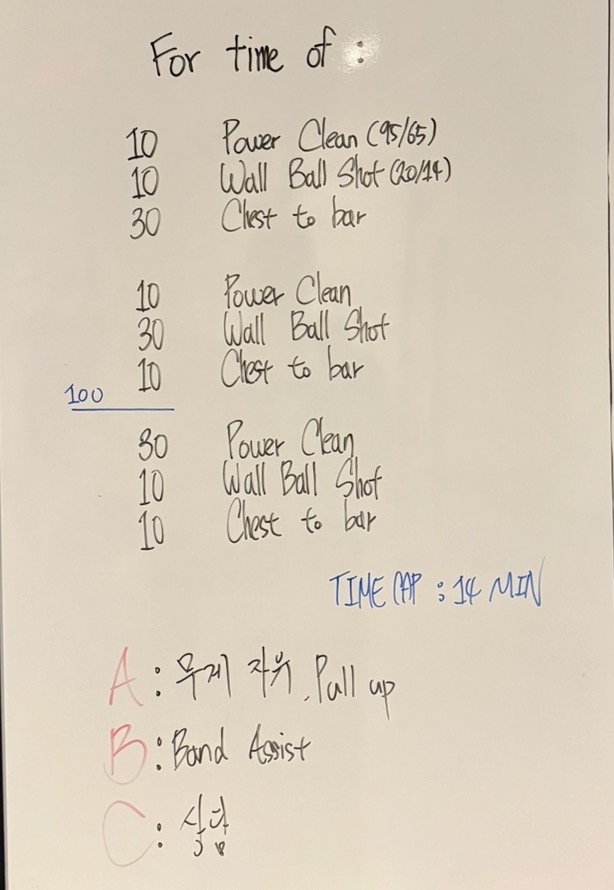 For time of :
10 Power Clean (95/65)
10 Wall Ball Shot (20/14)
30 Chest to bar
10 Power Clean
30 Wall Ball Shot
10 Chest to bar
100
30 Power Clean
10 Wall Ball Shot
10 Chest to bar
TIME CAP : 14 MIN
A : 무게 자유, Pull up
B : Band Assist
C :